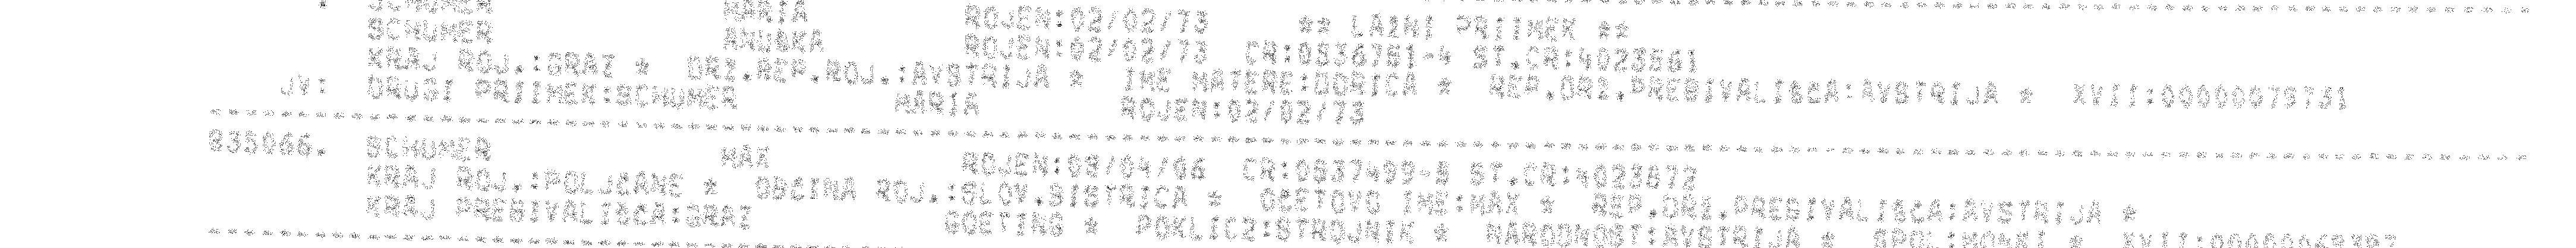 * SCHUMER MARIA ROJEN:02/02/73 ** LAZNI PRIIMEK **
SCHUMER ANUSKA ROJEN:02/02/73 CR:0536761-4 ST.CR:4023561
KRAJ ROJ.:GRAZ * DRZ.REP.ROJ.:AVSTRIJA * IME MATERE:DORICA * REP.DRZ.PREBIVALISCA:AVSTRIJA * XVII:00000079731
JV: DRUGI PRIIMEK:SCHUMER MARIA ROJEN:02/02/73
835066. SCHUMER MAX ROJEN:09/04/06 CR:0537499-8 ST.CR:4023672
KRAJ ROJ.:POLJCANE * OBCINA ROJ.:SLOV.BISTRICA * OCETOVO IME:MAX * REP.DRZ.PREBIVALISCA:AVSTRIJA *
KRAJ PREBIVALISCA:GRAZ GOETING * POKLIC2:STROJNIK * NARODNOST:AVSTRIJA * SPOL:MOSKI *